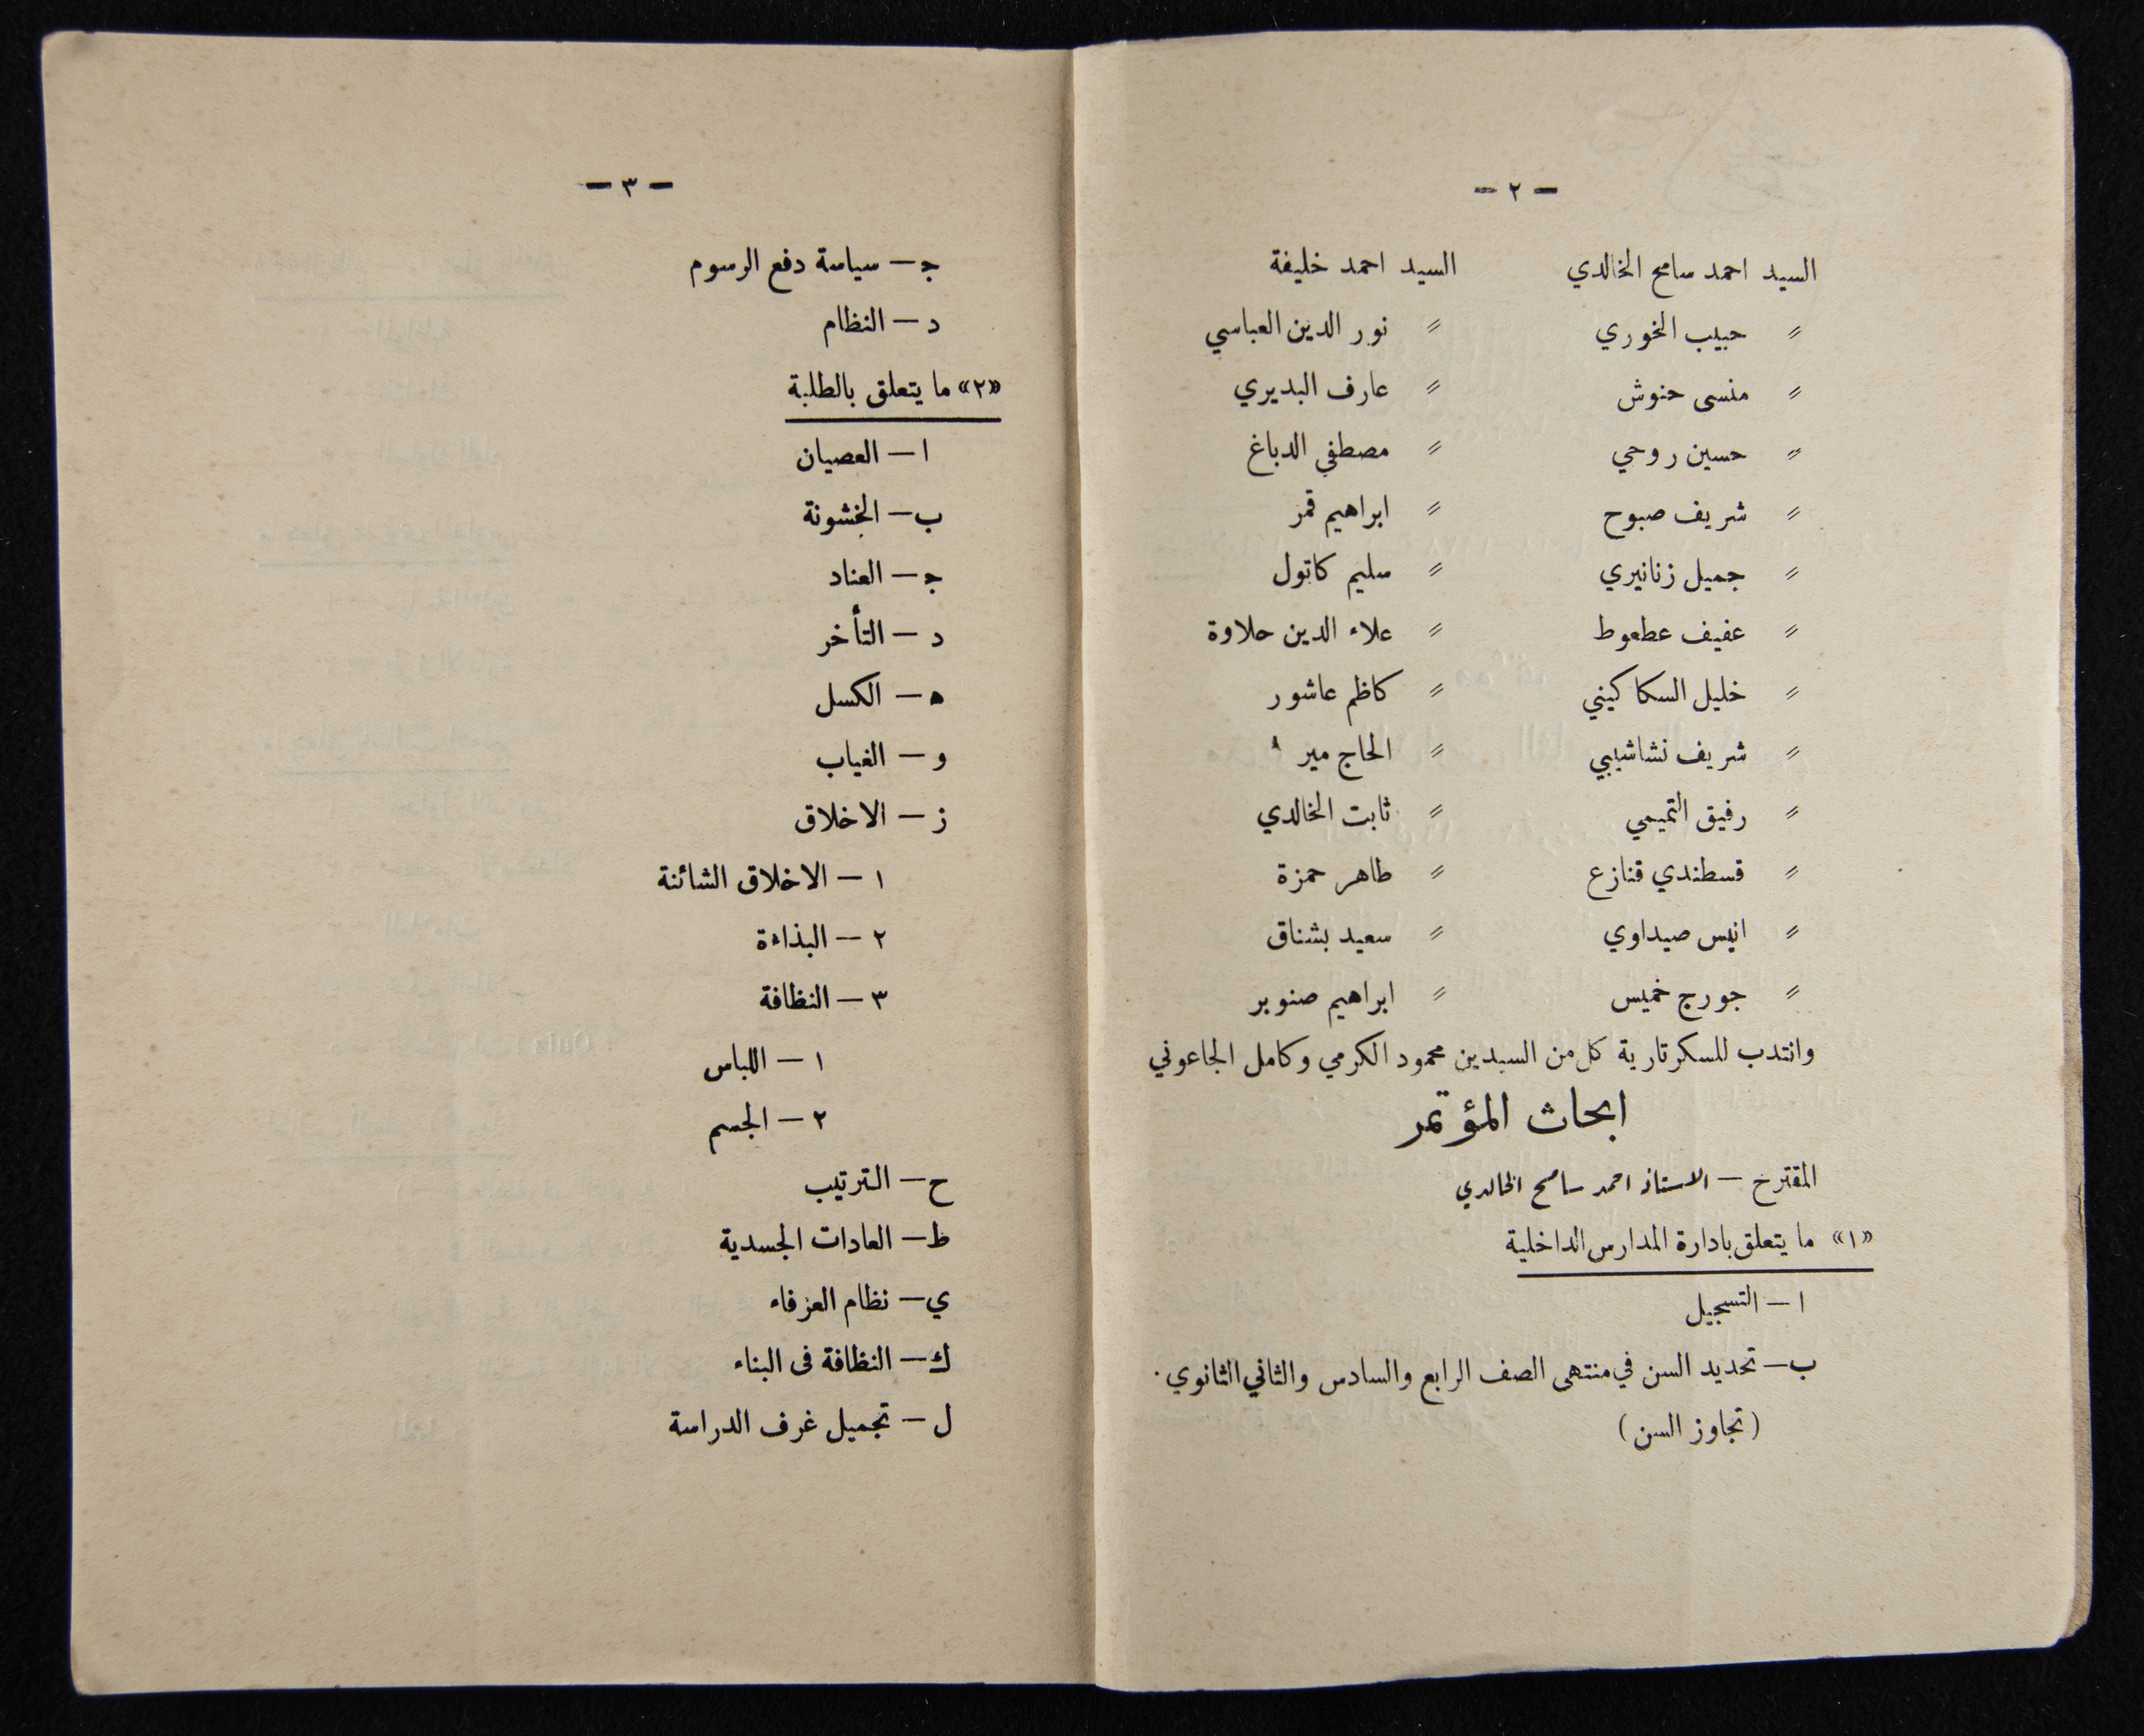 — ٢ —
السيد احمد سامح الخالدي السيد احمد خليفة
〃 حبيب الخوري 〃 نور الدين العباسي
〃 منسى حنوش 〃 عارف البديري
〃 حسين روحي 〃 مصطفي الدباغ
〃 شريف صبوح 〃 ابراهيم قمر
〃 جميل زنانيري 〃 سليم كاتول
〃 عفيف عطعوط 〃 علاء الدين حلاوة
〃 خليل السكاكيني 〃 كاظم عاشور
〃 شريف نشاشيبي 〃 الحاج مير
〃 رفيق التميمي 〃 ثابت الخالدي
〃 قسطندي قنازع 〃 طاهر حمزة
〃 انيس صيداوي 〃 سعيد بشناق
〃 جورج خميس 〃 ابراهيم صنوبر
وانتدب للسكرتارية كل من السيدين محمود الكرمي وكامل الجاعوني
ابحاث المؤتمر
المقترح — الاستاذ احمد سامح الخالدي
«١» ما يتعلق بادارة المدارس الداخلية
ا — التسجيل
ب — تحديد السن في منتهى الصف الرابع والسادس والثاني الثانوي .
( تجاوز السن )
— ٣ —
ج — سياسة دفع الرسوم
د — النظام
«٢» ما يتعلق بالطلبة
ا — العصيان
ب — الخشونة
ج — العناد
د — التأخر
ه — الكسل
و — الغياب
ز — الاخلاق
١ — الاخلاق الشائنة
٢ — البذاءة
٣ — النظافة
١ — اللباس
٢ — الجسم
ح — الترتيب
ط — العادات الجسدية
ي — نظام العزفاء
ك — النظافة فى البناء
ل — تجميل غرف الدراسة